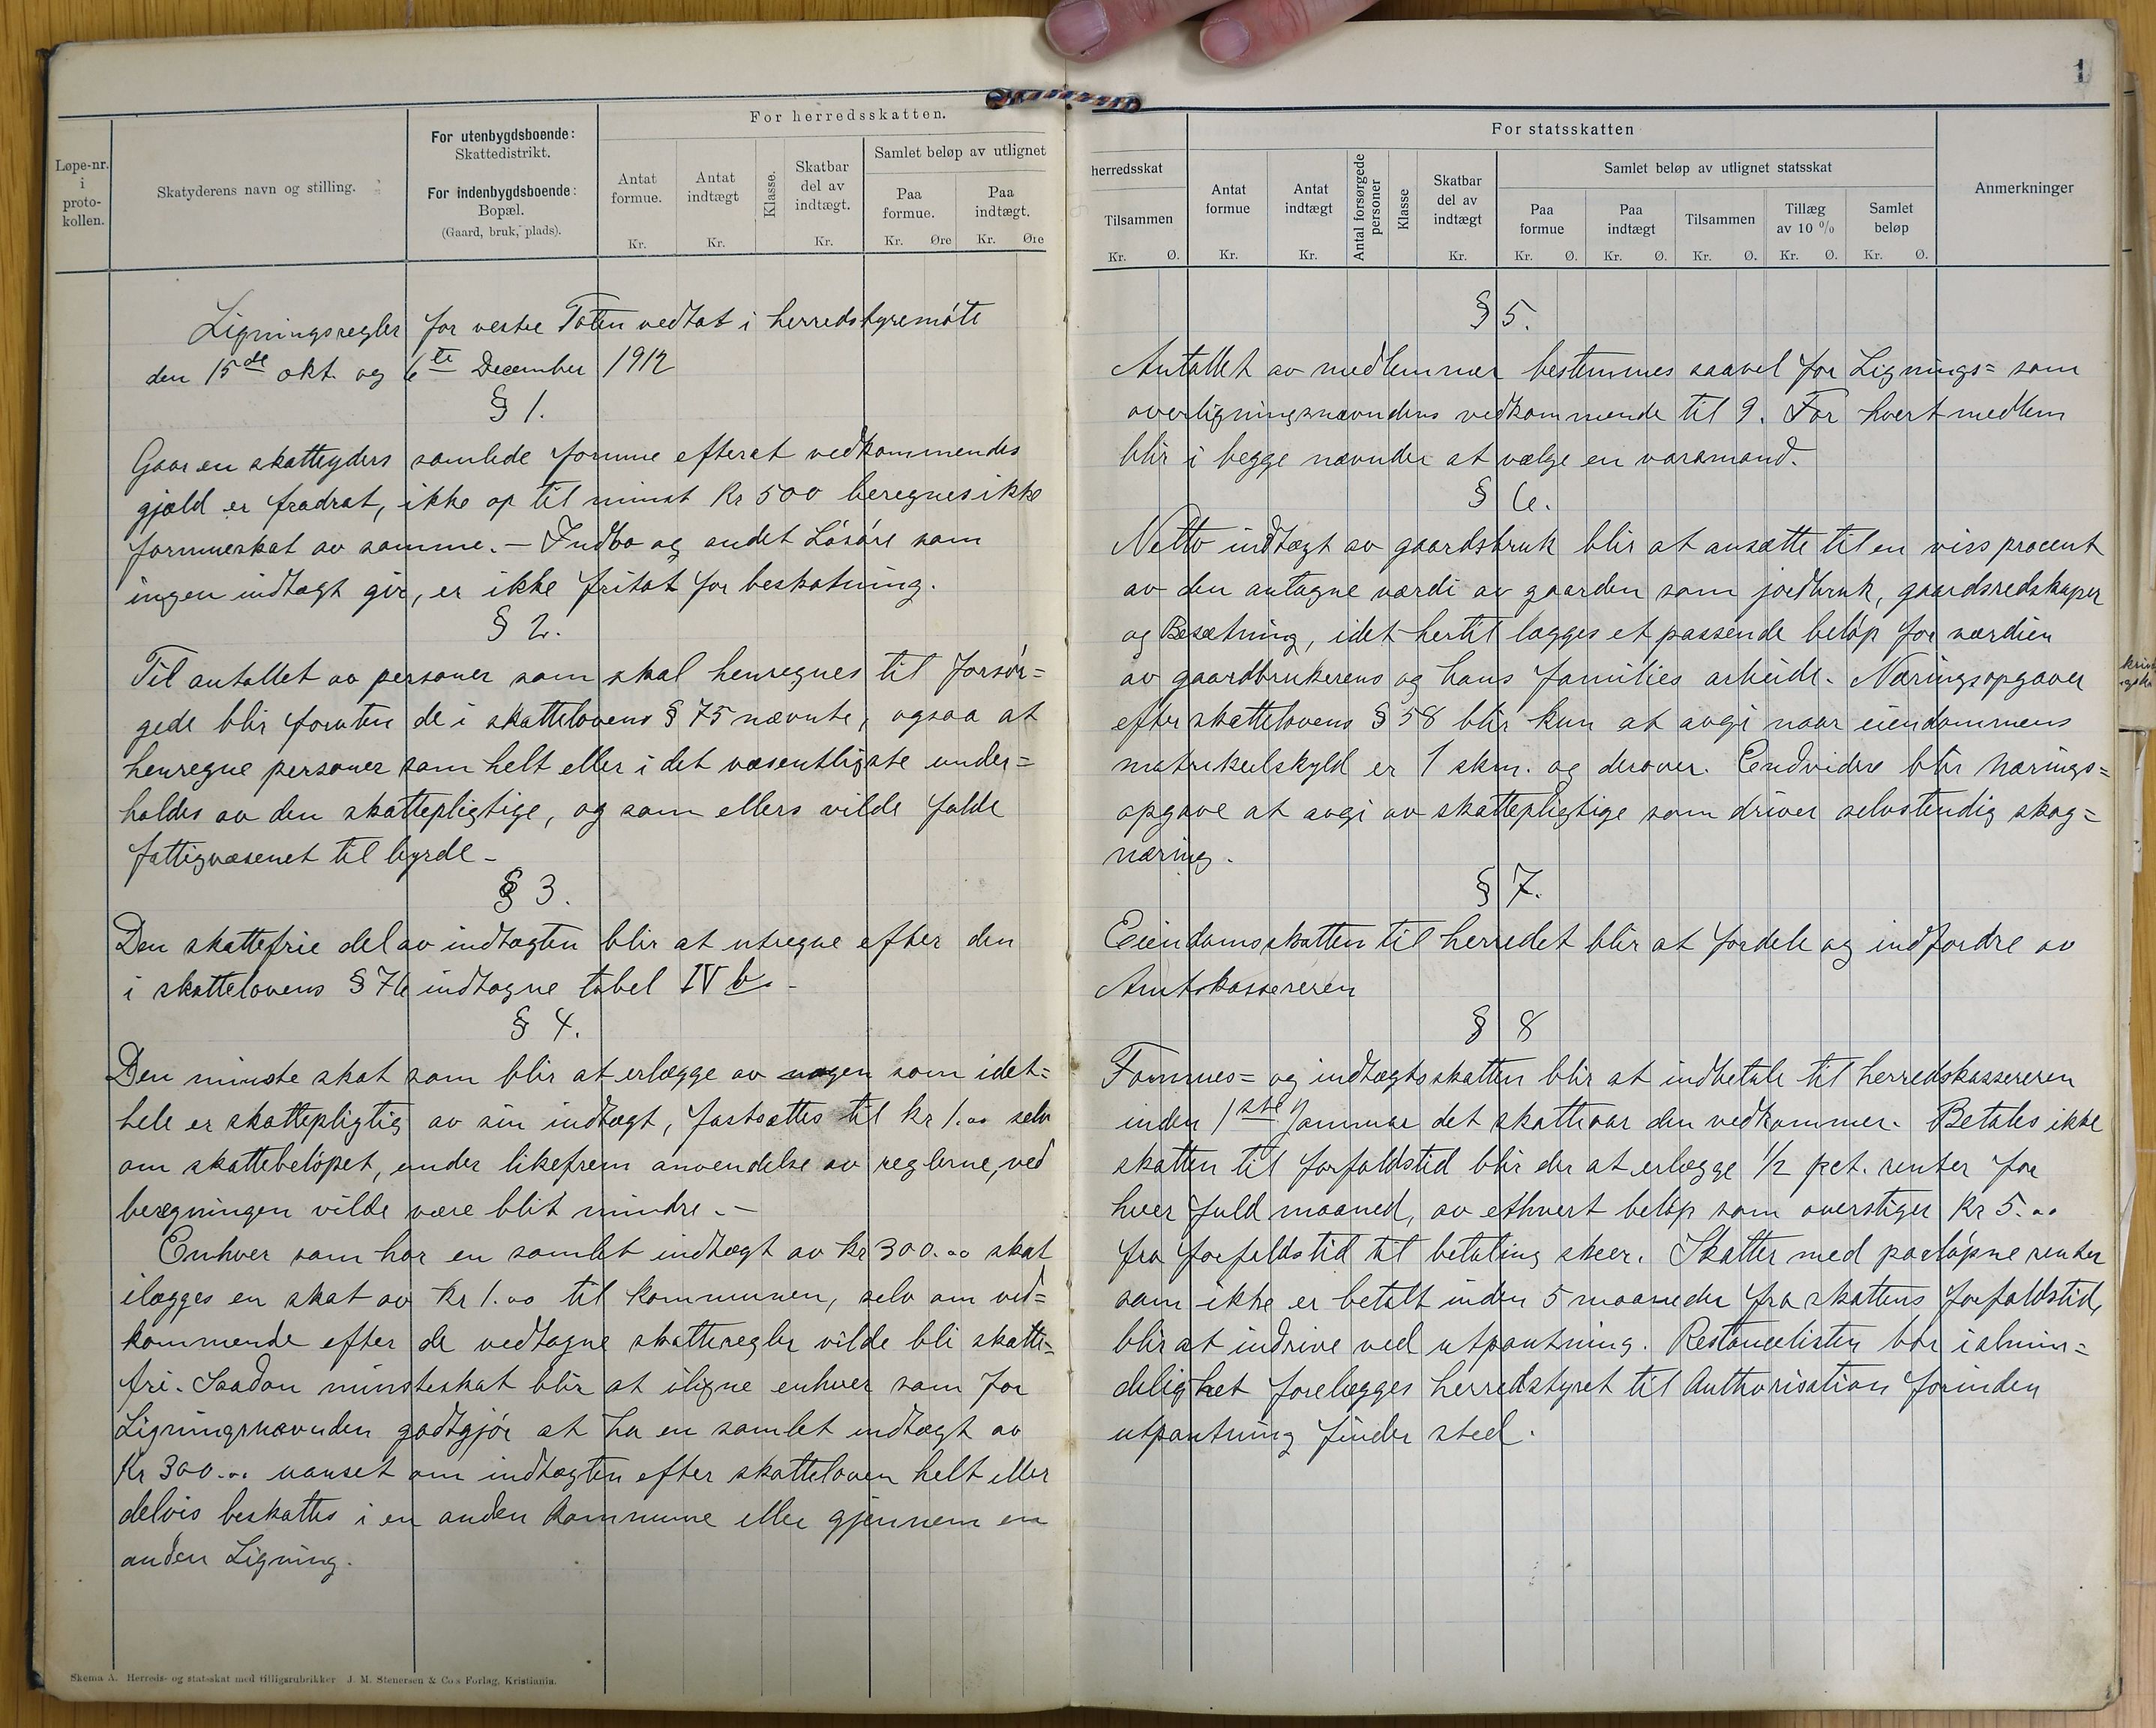 1
For herredsskatten.
Løpe-nr. i proto-kollen.
Skatyderens navn og stilling.
For utenbygdsboende:
Skattedistrikt.
For indenbygdsboende:
Bopæl.
(Gaard, bruk, plads).
Antat formue.
Kr.
Antat indtægt
Kr.
Klasse.
Skatbar del av indtægt.
Kr.
Samlet beløp av utlignet
Paa formue.
Kr. Øre
Paa indtægt.
Kr. Øre
Ligningsregler for vestre Toten vedtat i herredstyremøte
den 15de okt. og 6te December 1912
§ 1.
Gaar en skatteyders samlede formue efterat vedkommendes
gjæld er fradrat, ikke op til minst Kr 500 beregnes ikke
formueskat av samme. – Indbo og andet Løsøre som
ingen indtægt gir, er ikke fritat for beskatning.
§ 2.
Til antallet av personer som skal henregnes til forsør=
gede blir foruten de i skattelovens § 75 nævnte, ogsaa at
henregne personer som helt eller i det væsentligste under=
holdes av den skattepligtige, og som ellers vilde falde
fattigvæsenet til byrde –
§ 3.
Den skattefrie del av indtægten blir at utregne efter den
i skattelovens § 76 indtagne tabel IV b. –
§ 4.
Den minste skat som blir at erlægge av nogen som idet=
hele er skattepligtig av sin indtægt, fastsættes til kr 1.00 selv
om skattebeløpet, under likefrem anvendelse av reglerne, ved
beregningen vilde være blit mindre. –
Enhver som har en samlet indtægt av kr 300.00 skal
ilægges en skat av Kr 1.00 til kommunen, selv om ved=
kommende efter de vedtagne skatteregler vilde bli skatte=
fri. Saadan minsteskat blir at iligne enhver som for
Ligningsnævnden godtgjør at ha en samlet indtægt av
Kr 300.00 uanset om indtægten efter skatteloven helt eller
delvis beskattes i en anden kommune eller gjennem en
anden Ligning.
Skema A. Herreds- og statsskat med tilligsrubrikker J. M. Stenersen & Co.s Forlag, Kristiania.
herredsskat
Tilsammen
Kr. Ø.
For statsskatten
Antat formue
Kr.
Antat indtægt
Kr.
Antal forsørgede personer
Klasse
Skatbar del av indtægt
Kr.
Samlet beløp av utlignet statsskat
Paa formue
Kr. Ø.
Paa indtægt
Kr. Ø.
Tilsammen
Kr. Ø.
Tillæg av 10 %
Kr. Ø.
Samlet beløp
Kr. Ø.
Anmerkninger
§ 5.
Antallet av medlemmer bestemmes saavel for Lignings= som
overligningsnævndens vedkommende til 9. For hvert medlem
blir i begge nævnder at vælge en varamand.
§ 6.
Netto indtægt av gaardsbruk blir at ansætte til en viss procent
av den antagne værdi av gaarden som jordbruk, gaardsredskaper
og Besætning, idet hertil lægges et passende beløp for værdien
av gaardbrukerens og hans families arbeide. Næringsopgaver
efter skattelovens § 58 blir kun at avgi naar eiendommens
matrikulskyld er 1 skm. og derover. Endvidere blir nærings=
opgave at avgi av skattepligtige som driver selvstendig skog=
næring.
§ 7.
Eiendomsskatten til herredet blir at fordele og indfordre av
Amtskassereren
§ 8
Formues= og indtægtsskatten blir at indbetale til herredskassereren
inden 1ste Januar det skatteaar den vedkommer. Betales ikke
skatten til forfaldstid blir der at erlægge 1/2 pct. renter for
hver fuld maaned, av ethvert beløp som overstiger Kr 5.00
fra forfaldstid til betaling skeer. Skatter med paaløpne renter
som ikke er betalt inden 5 maaneder fra skattens forfaldstid,
blir at indrive ved utpantning. Restancelisten bør i almin=
delighet forelægges herredstyret til Authorisation forinden
utpantning finder sted.